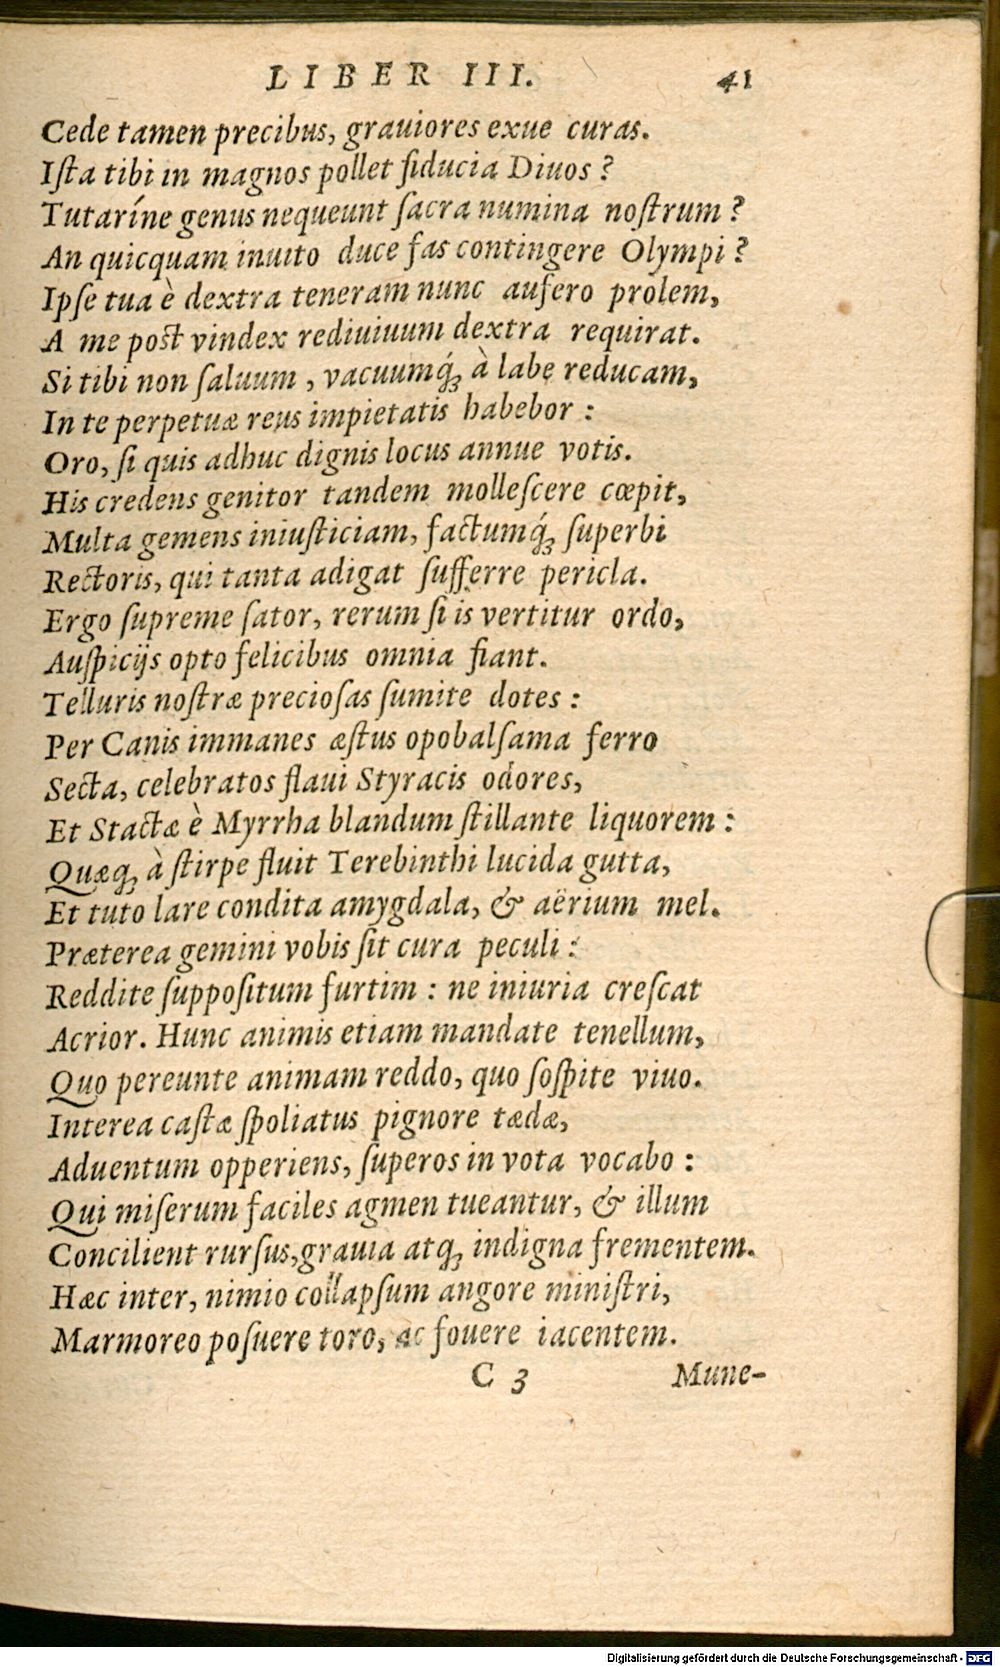 LIBER III. 41
Cede tamen precibus, grauiores exue curas.
Iſta tibi in magnos pollet fiducia Diuos?
Tutaríne genus nequeunt ſacra numina noſtrum?
An quicquam inuito duce fas contingere Olympi?
Ipſe tua è dextra teneram nunc aufero prolem,
A me post vindex rediuiuum dextra requirat.
Si tibi non ſaluum, vacuumq́; à labe reducam,
In te perpetuæ reus impietatis habebor:
Oro, ſi quis adhuc dignis locus annue votis.
His credens genitor tandem molleſcere cœpit,
Multa gemens iniuſticiam, factumq́; ſuperbi
Rectoris, qui tanta adigat ſufferre pericla.
Ergo ſupreme ſator, rerum ſi is vertitur ordo,
Auſpicijs opto felicibus omnia fiant.
Telluris noſtræ precioſas ſumite dotes:
Per Canis immanes æſtus opobalſama ferro
Secta, celebratos flaui Styracis odores,
Et Stactæ è Myrrha blandum ſtillante liquorem:
Quæq; à ſtirpe fluit Terebinthi lucida gutta,
Et tuto lare condita amygdala, & aërium mel.
Præterea gemini vobis ſit cura peculi:
Reddite ſuppoſitum furtim: ne iniuria creſcat
Acrior. Hunc animis etiam mandate tenellum,
Quo pereunte animam reddo, quo ſoſpite viuo.
Interea caſtæ ſpoliatus pignore tædæ,
Aduentum opperiens, ſuperos in vota vocabo:
Qui miſerum faciles agmen tueantur, & illum
Concilient rurſus, grauia atq; indigna frementem.
Hæc inter, nimio collapſum angore miniſtri,
Marmoreo poſuere toro, ac fouere iacentem.
C 3 Mune-
Digitalisierung gefördert durch die Deutsche Forschungsgemeinschaft - DFG